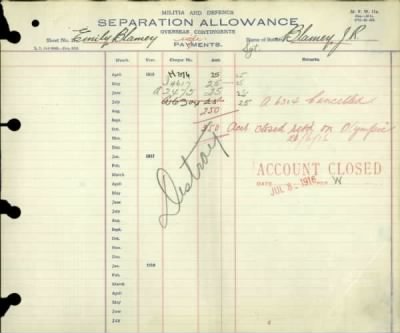 MILITIA AND DEFENCE
SEPARATION ALLOWANCE
OVERSEAS CONTINGENTS
PAYMENTS.
Sheet No. Emily Blamey
Name of Soldier Blamey, J.R.
Sgt.
Month. Year. Cheque No. Amt. Remarks
April 1916 25 25
May J4617 25 25
June A2475 25 25
July 25 A 6304 Cancelled
Aug. 250
Sept. 250 Acct closed retd on Olympic
Oct.
Nov.
Dec.
Jan. 1917
Feb.
March
April
May
June
July
Aug.
Sept.
Oct.
Nov.
Dec.
Jan. 1918
Feb.
March
April
May
June
July
Destroy
ACCOUNT CLOSED
DATE JUL 8 - 1916 PER W